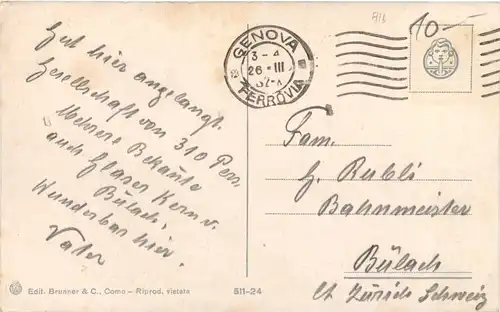 Gut hier angelangt.
Gesellschaft von 310 Pers.
Mehrere Bekannte
auch Glaser Kern v.
Bülach.
Wunderbar hier.
Vater
GENOVA
3-4
26·III
32·X
FERROVIA
A13
10.—
T
Fam.
H. Rubli
Bahnmeister
Bülach
Ct. Zürich Schweiz
Edit. Brunner & C., Como – Riprod. vietata
511-24